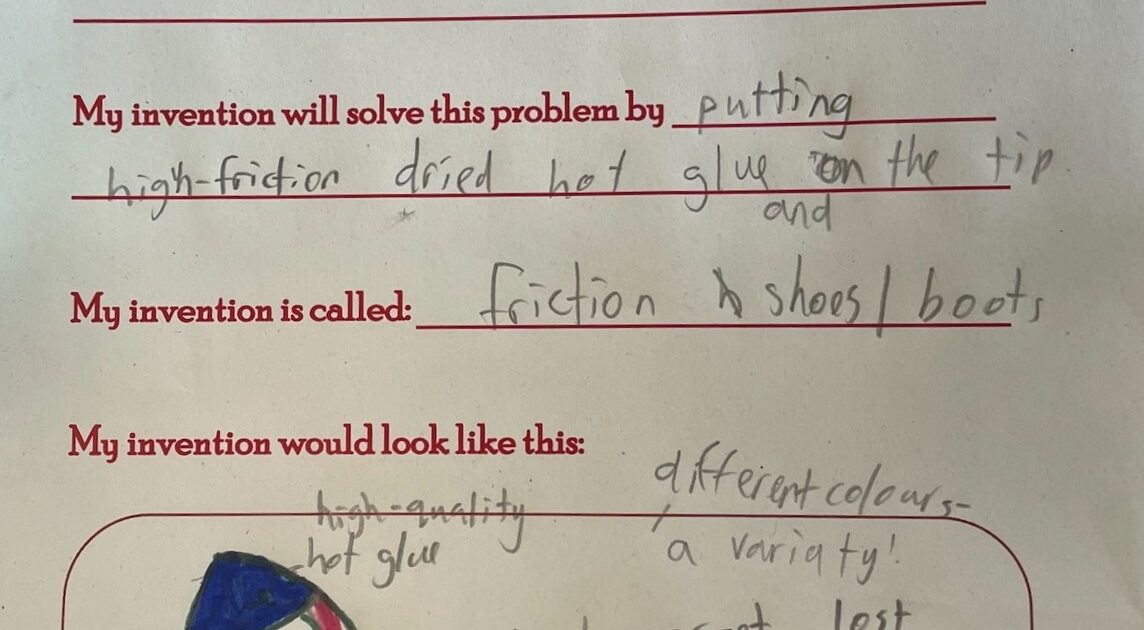 My invention will solve this problem by putting
high-friction dried hot glue on the tip
and
My invention is called: friction shoes/boots
My invention would look like this:
different colours-
high-quality
hot glue
a variaty!
lost